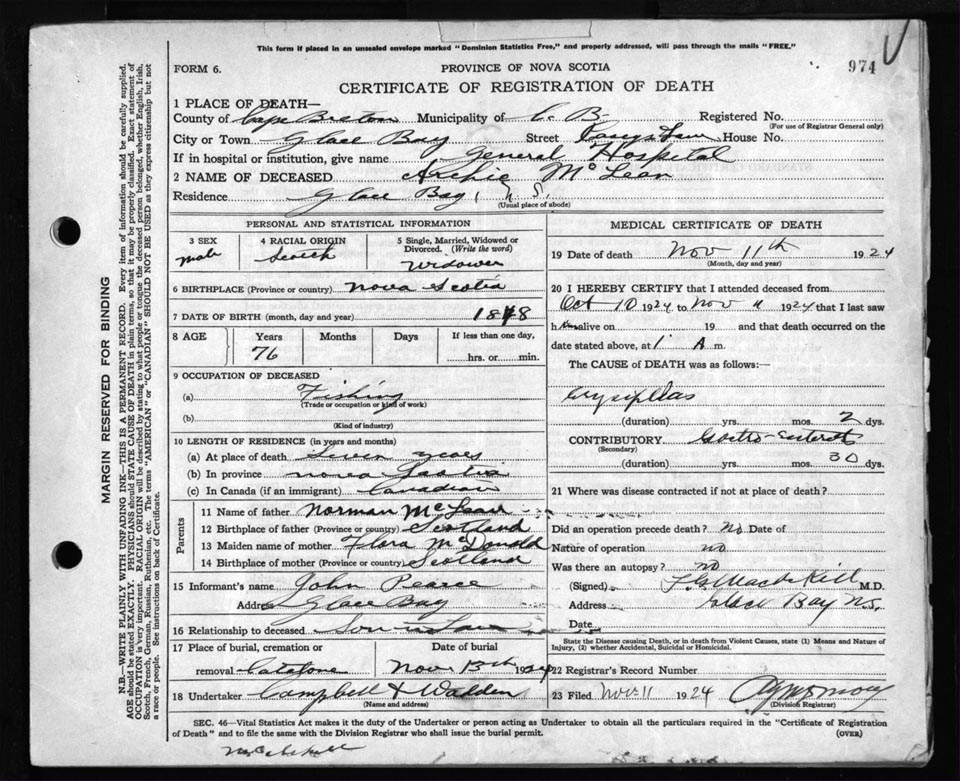 This form if placed in an unsealed envelope marked "Dominion Statistics Free," and properly addressed, will pass through the mails "FREE."
FORM 6.
PROVINCE OF NOVA SCOTIA
974
CERTIFICATE OF REGISTRATION OF DEATH
1 PLACE OF DEATH—
County of Cape Breton Municipality of C. B. Registered No.
(For use of Registrar General only)
City or Town Glace Bay Street House No.
If in hospital or institution, give name General Hospital
2 NAME OF DECEASED Archie McLean
Residence Glace Bay, N. S.
(Usual place of abode)
PERSONAL AND STATISTICAL INFORMATION
3 SEX
male
4 RACIAL ORIGIN
Scotch
5 Single, Married, Widowed or Divorced. (Write the word)
Widower
6 BIRTHPLACE (Province or country) Nova Scotia
7 DATE OF BIRTH (month, day and year) 1848
8 AGE Years Months Days If less than one day,
76 hrs. or min.
9 OCCUPATION OF DECEASED
(a) Fishing
(Trade or occupation or kind of work)
(b)
(Kind of industry)
10 LENGTH OF RESIDENCE (in years and months)
(a) At place of death Seven years
(b) In province Nova Scotia
(c) In Canada (if an immigrant) Canadian
Parents
11 Name of father Norman McLean
12 Birthplace of father (Province or country) Scotland
13 Maiden name of mother Flora McDonald
14 Birthplace of mother (Province or country) Scotland
15 Informant's name John Pearce
Address Glace Bay
16 Relationship to deceased Son in Law
17 Place of burial, cremation or removal Catalone
Date of burial
Nov 13th 1924
18 Undertaker Campbell & Walden
(Name and address)
MEDICAL CERTIFICATE OF DEATH
19 Date of death Nov 11th 1924
(Month, day and year)
20 I HEREBY CERTIFY that I attended deceased from
Oct 10 1924 to Nov 11 1924 that I last saw
h alive on 19 and that death occurred on
date stated above, at 1 A m.
The CAUSE of DEATH was as follows:—
Erysipelas
(duration) yrs. mos. 2 dys.
CONTRIBUTORY Gastro-Enteritis
(Secondary)
(duration) yrs. mos. 30 dys.
21 Where was disease contracted if not at place of death?
Did an operation precede death? No Date of
Nature of operation no
Was there an autopsy? no
(Signed) M.D.
Address Glace Bay N.S.
Date
State the Disease causing Death, or in death from Violent Causes, state (1) Means and Nature of
Injury, (2) whether Accidental, Suicidal or Homicidal.
22 Registrar's Record Number
23 Filed Nov 11 1924
(Division Registrar)
SEC. 46—Vital Statistics Act makes it the duty of the Undertaker or person acting as Undertaker to obtain all the particulars required in the "Certificate of Registration
of Death" and to file the same with the Division Registrar who shall issue the burial permit.
(OVER)
MARGIN RESERVED FOR BINDING
N.B.—WRITE PLAINLY WITH UNFADING INK—THIS IS A PERMANENT RECORD. Every item of information should be carefully supplied.
AGE should be stated EXACTLY. PHYSICIANS should STATE CAUSE OF DEATH in plain terms, so that it may be properly classified. Exact statement of
OCCUPATION is very important. RACIAL ORIGIN will be described by stating to what people or tongue the deceased person belonged, whether English, Irish,
Scotch, French, German, Russian, Ruthenian, etc. The terms "AMERICAN" or "CANADIAN" SHOULD NOT BE USED as they express citizenship but not
a race or people. See instructions on back of Certificate.